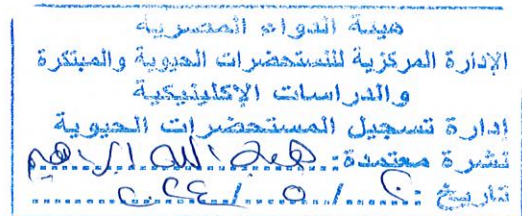 هيئة الدواء المصرية
الإدارة المركزية للمستحضرات الحيوية والمبتكرة
والدراسات الإكلينيكية
إدارة تسجيل المستحضرات الحيوية
نشرة معتمدة: هبة الله ابراهيم
تاريخ: / ٥ /